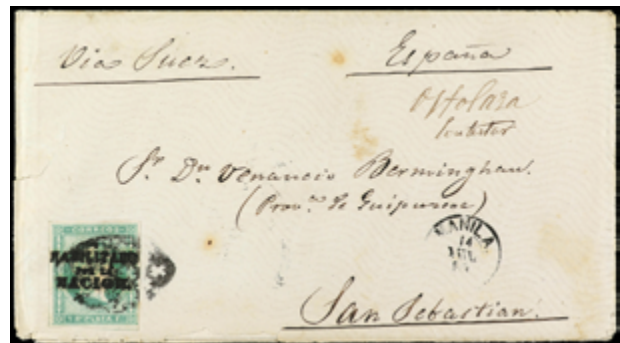 Via Suez.
España
Sr. Dn. Venancio Bermingham.
(Provª. de Guipuzcoa)
CORREOS
HABILITADO
POR LA
NACION.
MANILA
14
San Sebastian.